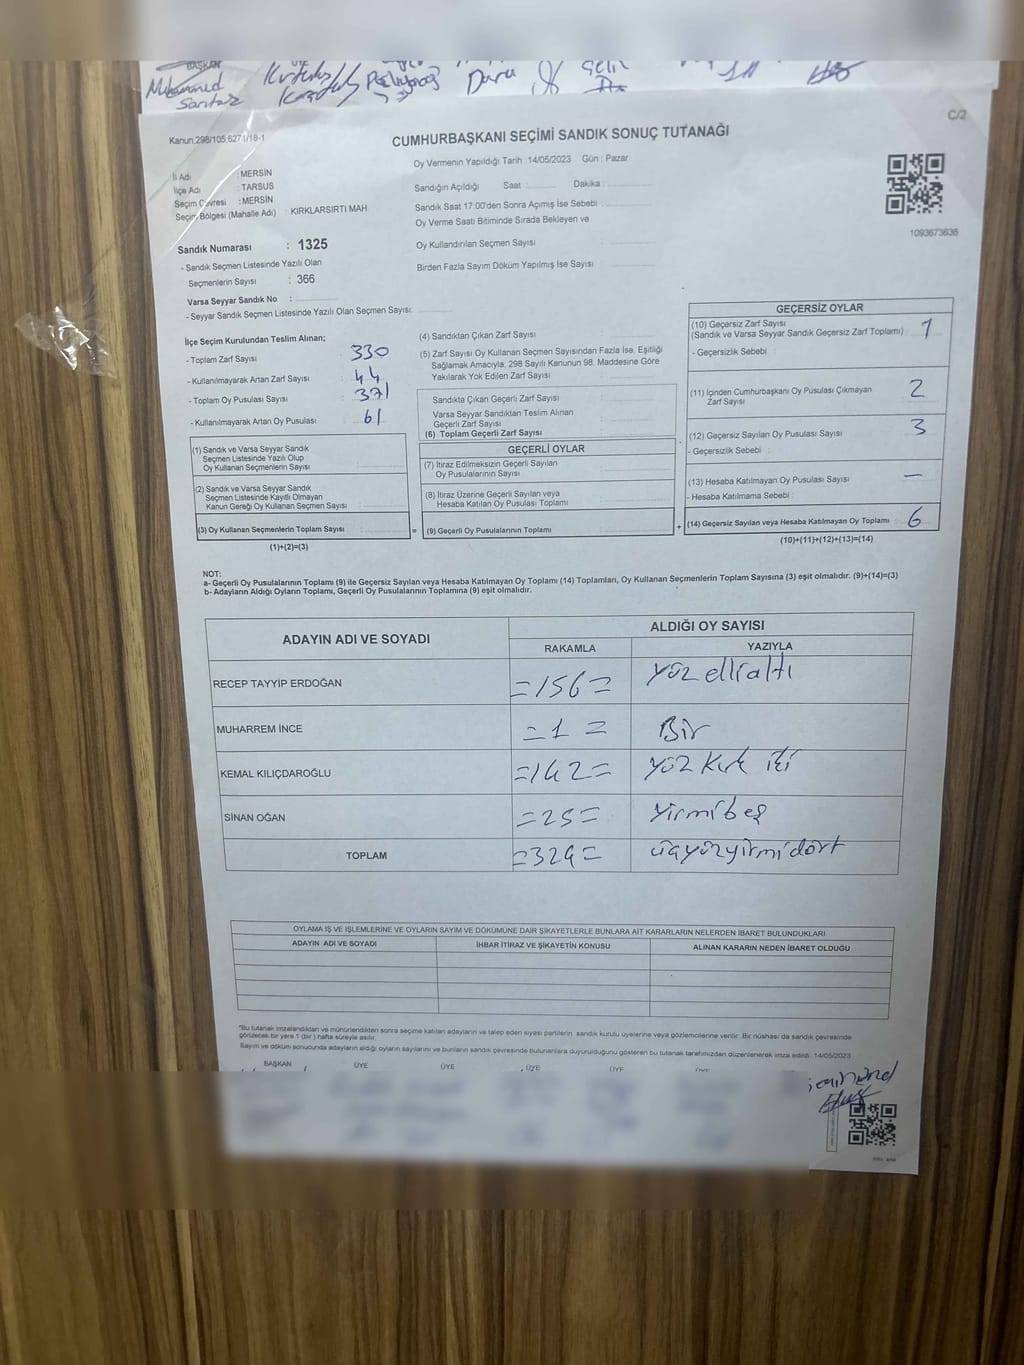 BAŞKAN
Muhammed
Kurtuluş
Daru
C/2
Kanun:298/105,6271/18-1
CUMHURBAŞKANI SEÇİMİ SANDIK SONUÇ TUTANAĞI
İl Adı : MERSİN
İlçe Adı : TARSUS
Seçim Çevresi : MERSİN
Seçim Bölgesi (Mahalle Adı) : KIRKLARSIRTI MAH
Oy Vermenin Yapıldığı Tarih :14/05/2023 Gün : Pazar
Sandığın Açıldığı Saat : Dakika :
Sandık Saat 17:00'den Sonra Açılmış İse Sebebi :
Oy Verme Saati Bitiminde Sırada Bekleyen ve
Oy Kullandırılan Seçmen Sayısı :
Birden Fazla Sayım Döküm Yapılmış İse Sayısı :
1093673636
Sandık Numarası : 1325
- Sandık Seçmen Listesinde Yazılı Olan
Seçmenlerin Sayısı : 366
Varsa Seyyar Sandık No :
- Seyyar Sandık Seçmen Listesinde Yazılı Olan Seçmen Sayısı:
İlçe Seçim Kurulundan Teslim Alınan;
- Toplam Zarf Sayısı : 330
- Kullanılmayarak Artan Zarf Sayısı : 44
- Toplam Oy Pusulası Sayısı : 371
- Kullanılmayarak Artan Oy Pusulası : 61
(1) Sandık ve Varsa Seyyar Sandık
Seçmen Listesinde Yazılı Olup
Oy Kullanan Seçmenlerin Sayısı :
(2) Sandık ve Varsa Seyyar Sandık
Seçmen Listesinde Kayıtlı Olmayan
Kanun Gereği Oy Kullanan Seçmen Sayısı :
(3) Oy Kullanan Seçmenlerin Toplam Sayısı :
(1)+(2)=(3)
(4) Sandıktan Çıkan Zarf Sayısı :
(5) Zarf Sayısı Oy Kullanan Seçmen Sayısından Fazla İse, Eşitliği
Sağlamak Amacıyla, 298 Sayılı Kanunun 98. Maddesine Göre
Yakılarak Yok Edilen Zarf Sayısı :
Sandıkta Çıkan Geçerli Zarf Sayısı :
Varsa Seyyar Sandıktan Teslim Alınan
Geçerli Zarf Sayısı :
(6) Toplam Geçerli Zarf Sayısı :
GEÇERLİ OYLAR
(7) İtiraz Edilmeksizin Geçerli Sayılan
Oy Pusulalarının Sayısı :
(8) İtiraz Üzerine Geçerli Sayılan veya
Hesaba Katılan Oy Pusulası Toplamı :
= (9) Geçerli Oy Pusulalarının Toplamı :
GEÇERSİZ OYLAR
(10) Geçersiz Zarf Sayısı
(Sandık ve Varsa Seyyar Sandık Geçersiz Zarf Toplamı) : 1
- Geçersizlik Sebebi :
(11) İçinden Cumhurbaşkanı Oy Pusulası Çıkmayan
Zarf Sayısı : 2
(12) Geçersiz Sayılan Oy Pusulası Sayısı : 3
- Geçersizlik Sebebi :
(13) Hesaba Katılmayan Oy Pusulası Sayısı : —
- Hesaba Katılmama Sebebi :
+ (14) Geçersiz Sayılan veya Hesaba Katılmayan Oy Toplamı : 6
(10)+(11)+(12)+(13)=(14)
NOT:
a- Geçerli Oy Pusulalarının Toplamı (9) ile Geçersiz Sayılan veya Hesaba Katılmayan Oy Toplamı (14) Toplamları, Oy Kullanan Seçmenlerin Toplam Sayısına (3) eşit olmalıdır. (9)+(14)=(3)
b- Adayların Aldığı Oyların Toplamı, Geçerli Oy Pusulalarının Toplamına (9) eşit olmalıdır.
ADAYIN ADI VE SOYADI ALDIĞI OY SAYISI
RAKAMLA YAZIYLA
RECEP TAYYİP ERDOĞAN =156= yüz elli altı
MUHARREM İNCE =1= Bir
KEMAL KILIÇDAROĞLU =142= yüz kırk iki
SİNAN OĞAN =25= yirmibeş
TOPLAM =324= üçyüzyirmidört
OYLAMA İŞ VE İŞLEMLERİNE VE OYLARIN SAYIM VE DÖKÜMÜNE DAİR ŞİKAYETLERLE BUNLARA AİT KARARLARIN NELERDEN İBARET BULUNDUKLARI
ADAYIN ADI VE SOYADI İHBAR İTİRAZ VE ŞİKAYETİN KONUSU ALINAN KARARIN NEDEN İBARET OLDUĞU
*Bu tutanak imzalandıktan ve mühürlendikten sonra seçime katılan adayların ve talep eden siyasi partilerin sandık kurulu üyelerine veya gözlemcilerine verilir. Bir nüshası da sandık çevresinde
görülecek bir yere 1 (bir) hafta süreyle asılır.
Sayım ve döküm sonucunda adayların aldığı oyların sayılarını ve bunların sandık çevresinde bulunanlara duyurulduğunu gösteren bu tutanak tarafımızdan düzenlenerek imza edildi. 14/05/2023
BAŞKAN ÜYE ÜYE ÜYE ÜYE ÜYE